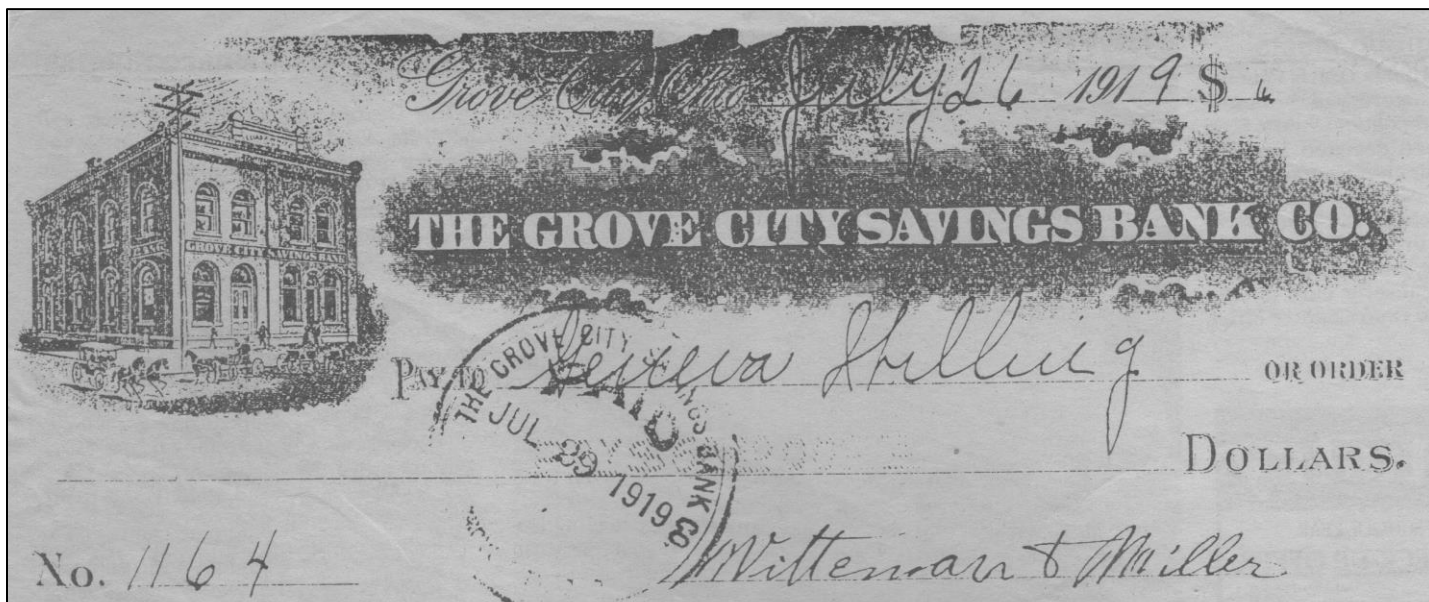 Grove City, Ohio July 26 1919 $
THE GROVE CITY SAVINGS BANK CO.
BANK GROVE CITY SAVINGS BANK
PAY TO Geneva Shilling OR ORDER
THE GROVE CITY SAVINGS BANK CO
PAID
JUL 29 1919
DOLLARS.
No. 1164
Witteman & Miller